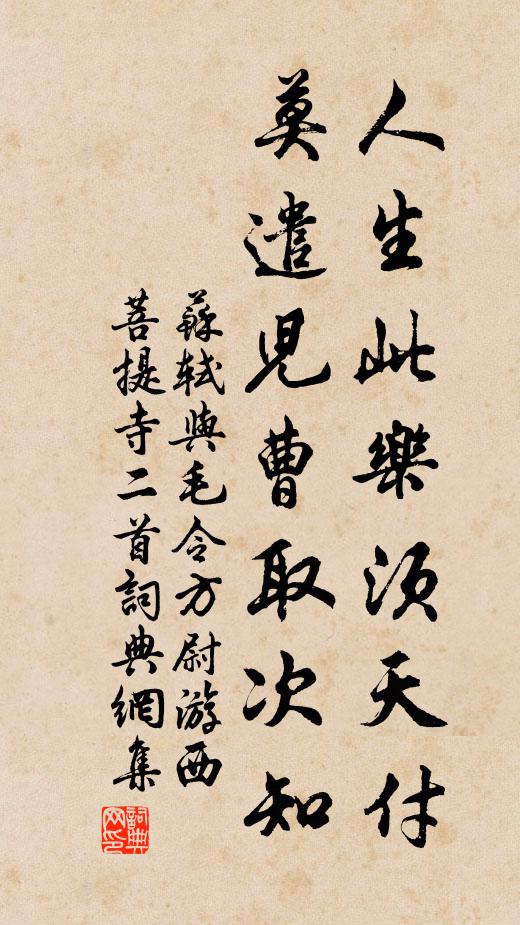 人生此樂須天付
莫遣兒曹取次知
蘇軾與毛令方尉游西
菩提寺二首詞典網集
詞典网印